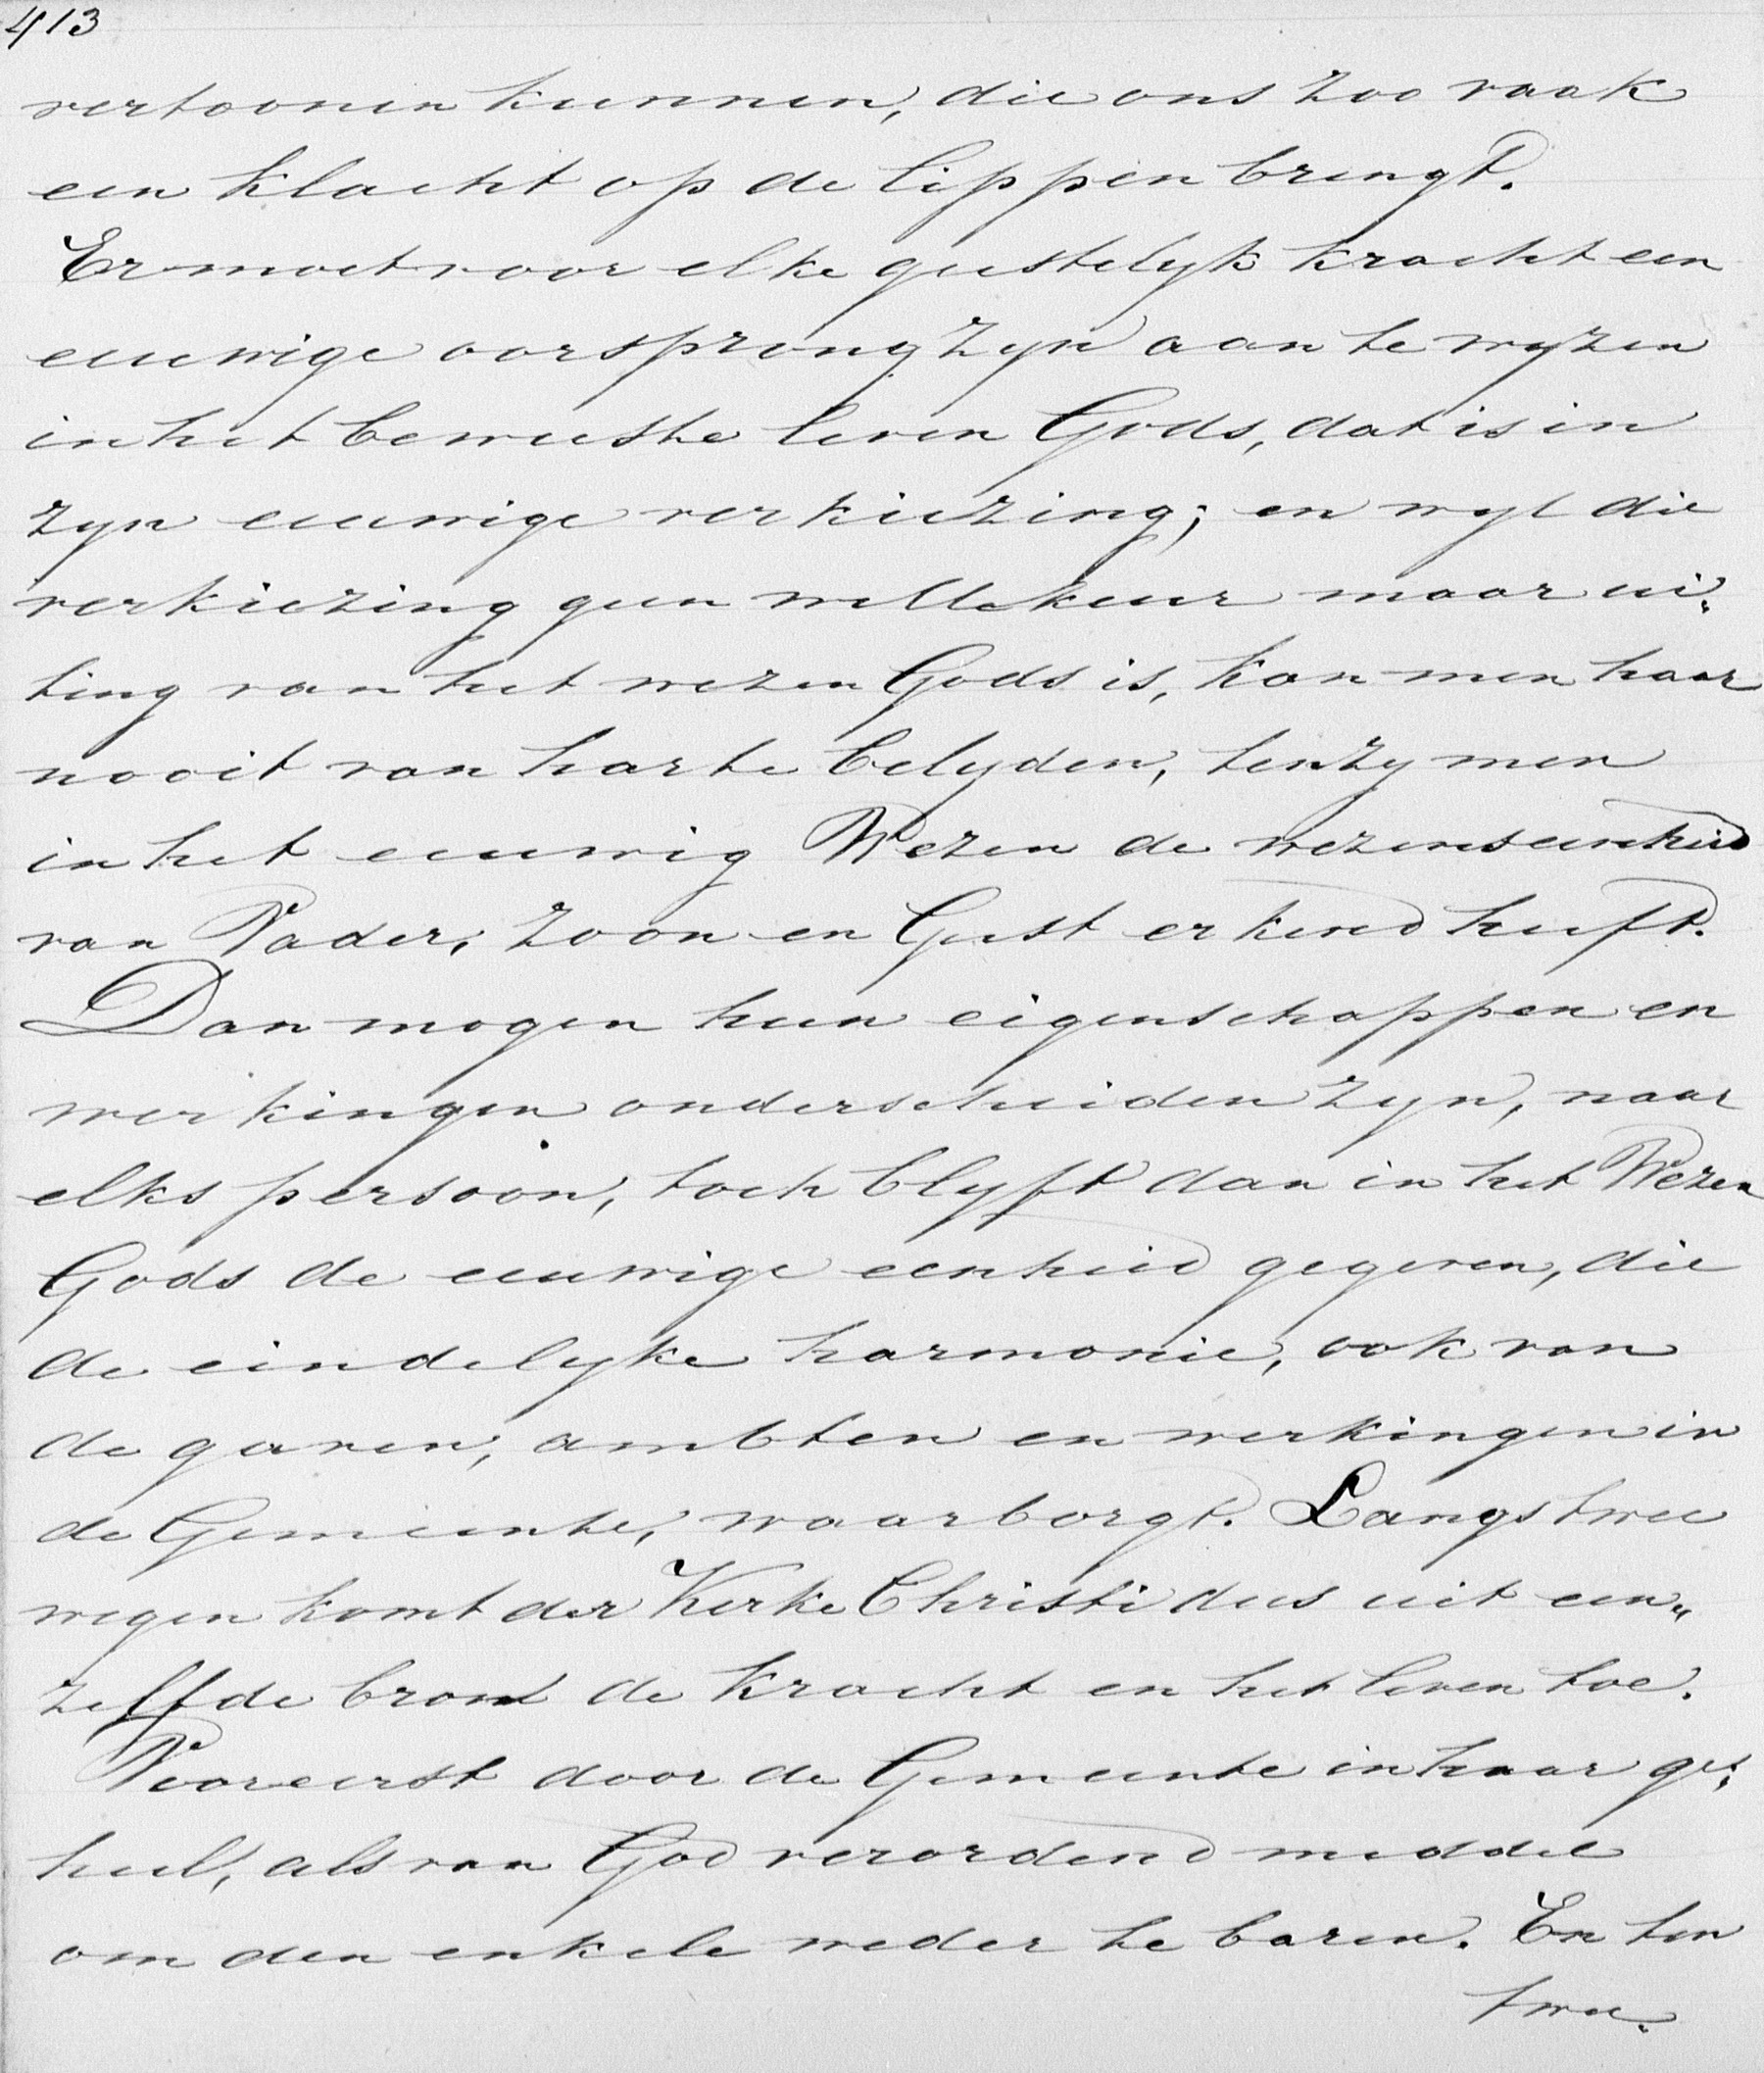 413
vertoonen kunnen, die ons zoo vaak
een klacht op de lippen brengt.
Er moet voor elke geestelyk kracht een
eeuwige oorsprong zyn aan te wyzen
in het bewuste leven Gods, dat is in
zyn eeuwige verkiezing; en wyl die
verkiezing geen willekeur maar ui„
ting van het wezen Gods is, kan men haar
nooit van harte belyden, tenzy men
in het eeuwig Wezen de wezenseenheid
van Vader, Zoon en Geest erkend heeft.
Dan mogen hun eigenschappen en
werkingen onderscheiden zyn, naar
elks persoon, toch blyft dan in het Wezen
Gods de eeuwige eenheid gegeven, die
de eindelyke harmonie, ook van
de gaven, ambten en werkingen in
de Gemeente, waarborgt. Langs twee
wegen komt der Kerke Christi dus uit een„
zelfde bron de kracht en het leven toe.
Vooreerst door de Gemeente in haar ge„
heel, als van God verordend middel
om den enkele weder te baren. En ten
twee„